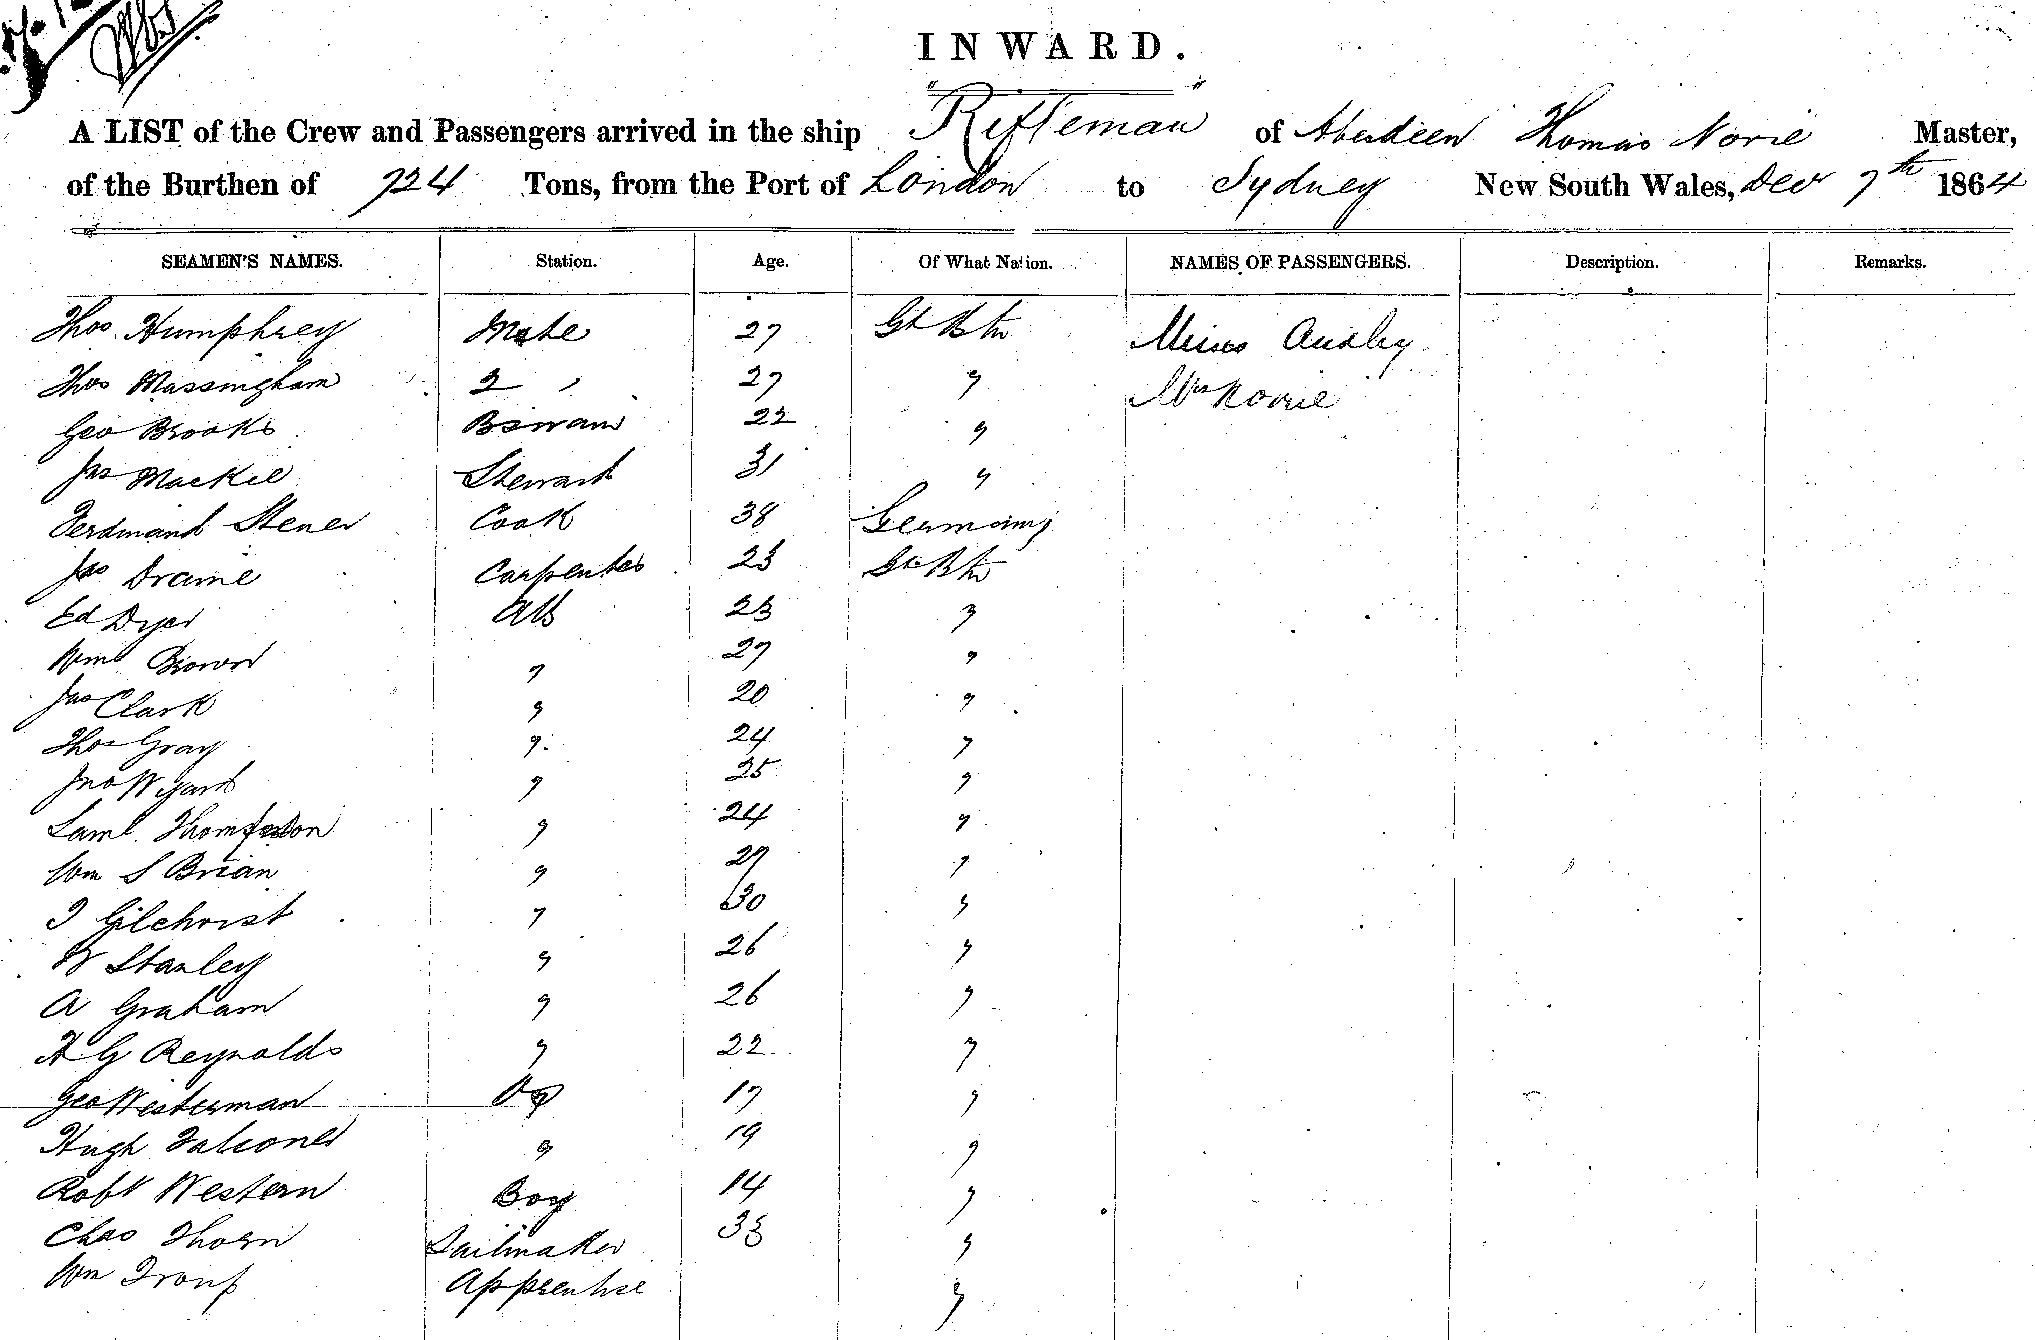 INWARD.
A LIST of the Crew and Passengers arrived in the ship "Rifleman" of Aberdeen Thomas Norie Master,
of the Burthen of 724 Tons, from the Port of London to Sydney New South Wales, Dec 7th 1864
SEAMEN'S NAMES. Station. Age. Of What Nation. NAMES OF PASSENGERS. Description. Remarks.
Thos Humphrey Mate 27 Gt Btn Audley
Thos Massingham 2 " 27 " Mrs Norie
Geo Brooks Boswain 22 "
Jas Mackie Steward 31 "
Ferdinand Stener Cook 38 Germany
Jas Carpenter 23 Gt Btn
Ed Dyer AB 23 "
Wm Brown " 27 "
Jno Clark " 20 "
Thos Gray " 24 "
Jno Wyard " 25 "
Saml Thompson " 24 "
Wm S Brian " 27 "
J Gilchrist " 30 "
W Stanley " 26 "
A Graham " 26 "
H G Reynolds " 22 "
Geo Westerman OS 17 "
Hugh Falconer " 19 "
Robt Western Boy 14 "
Chas Thorn Sailmaker 33 "
Wm Troup Apprentice "